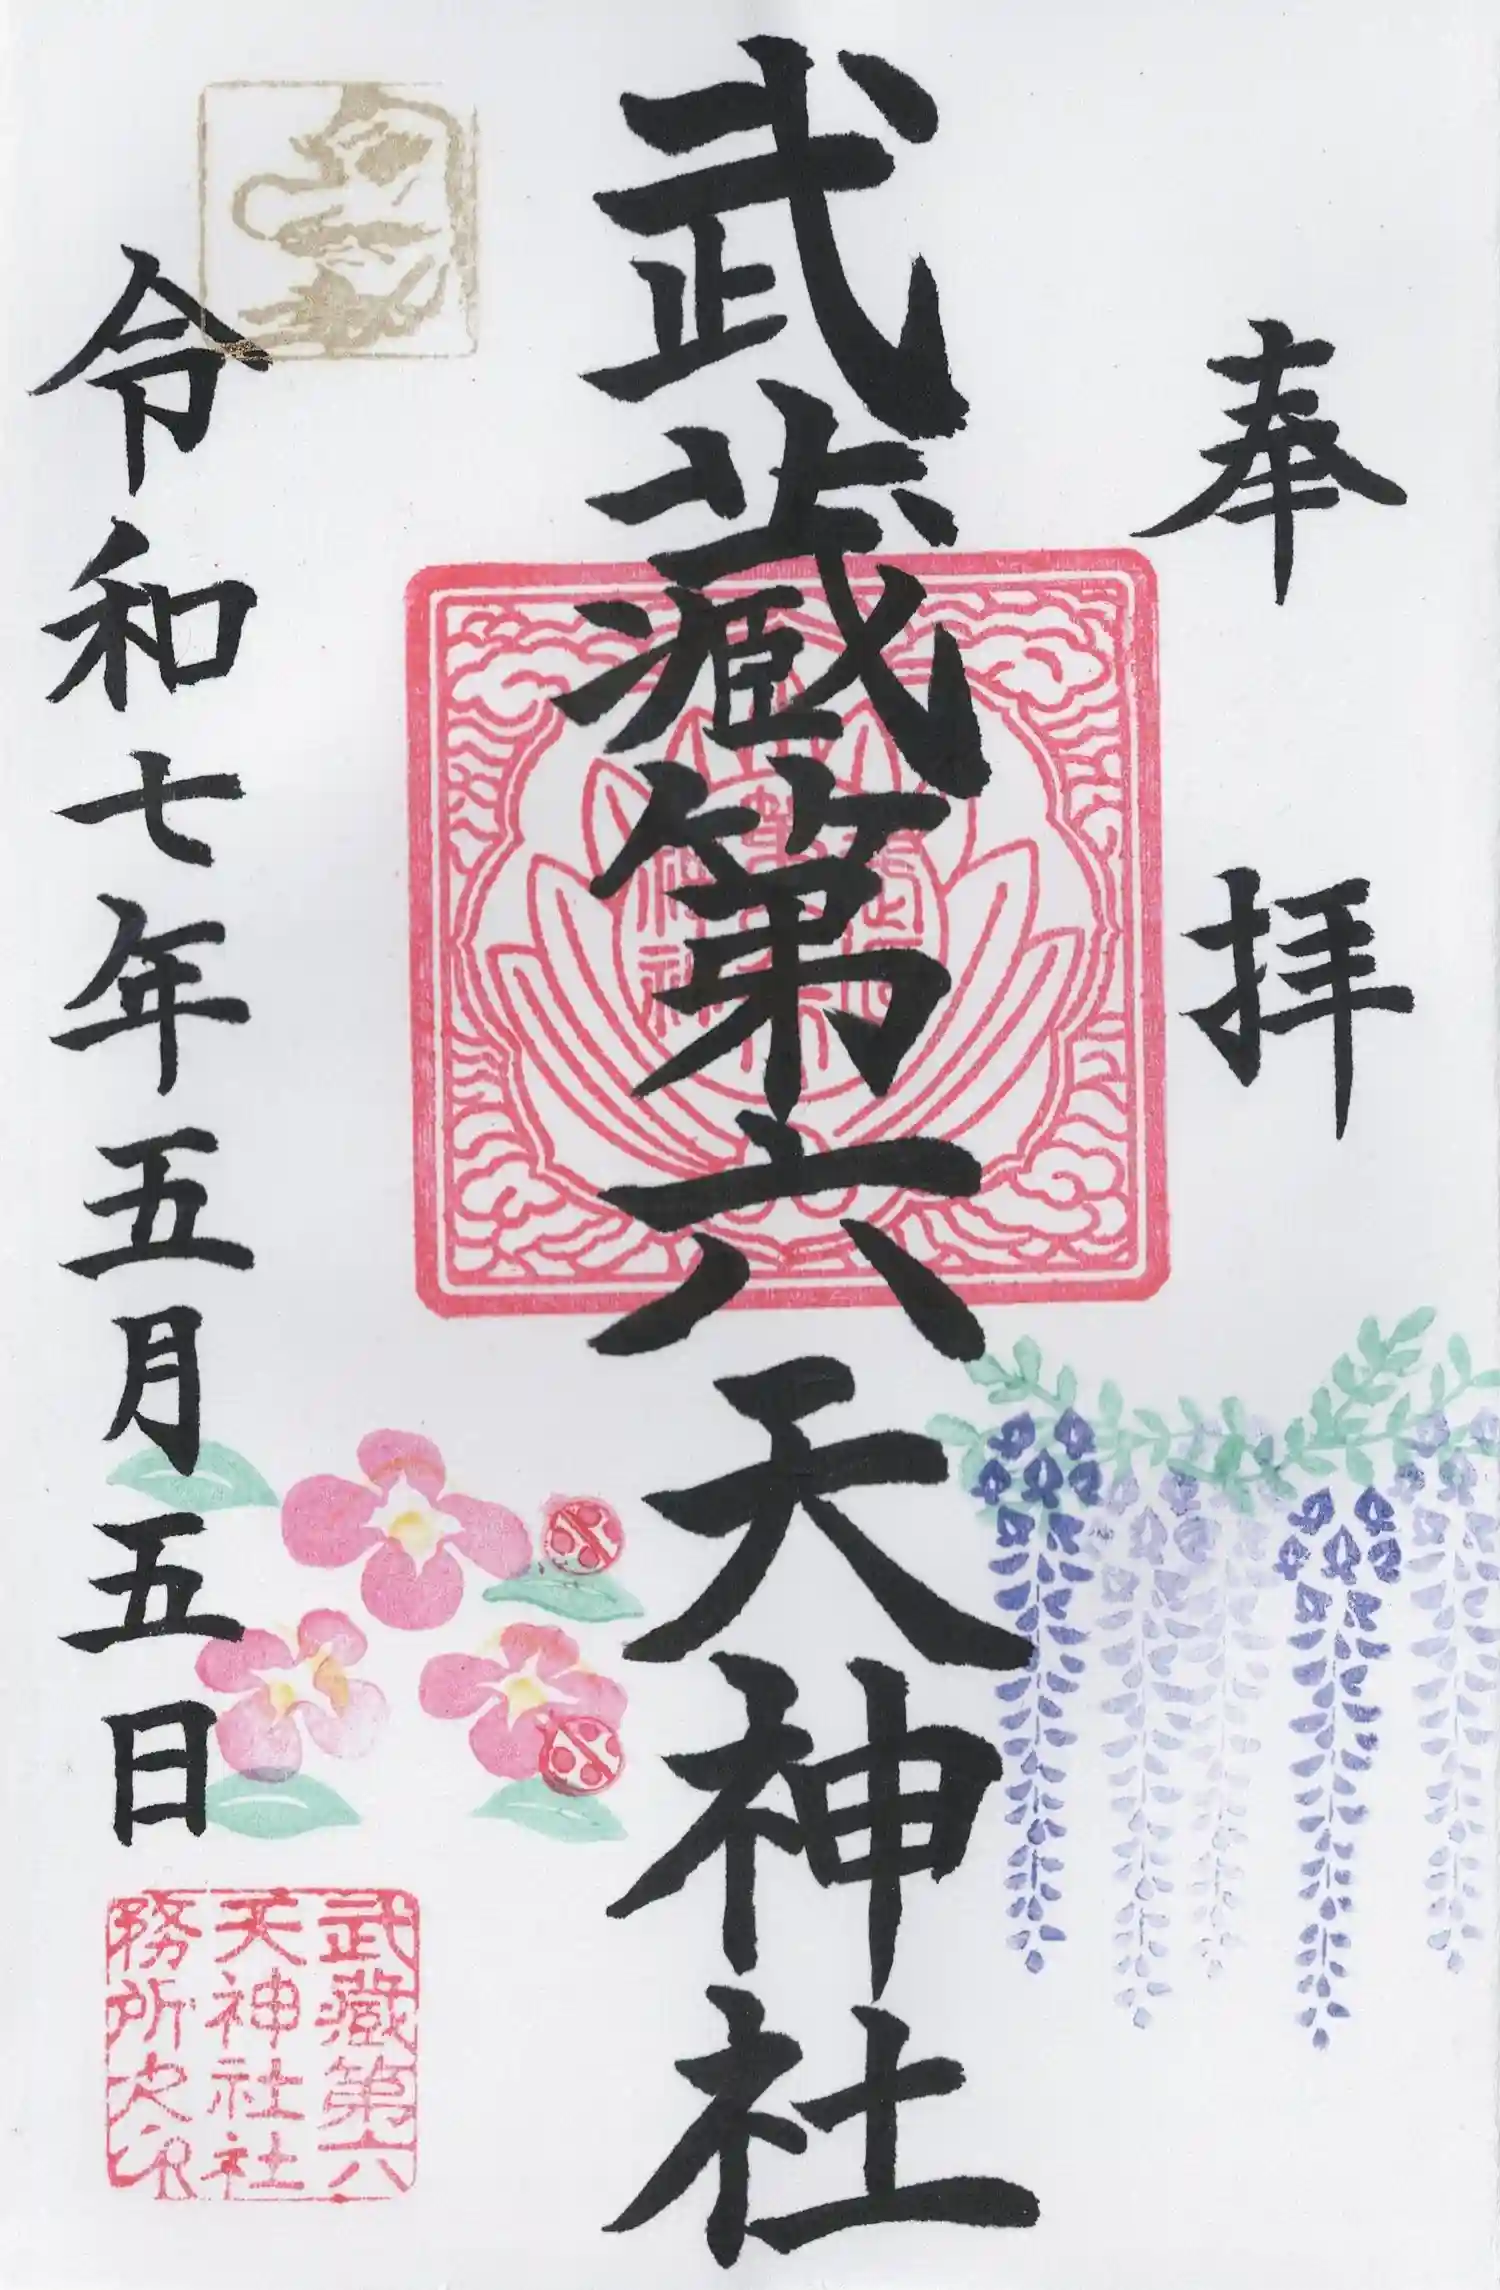 奉拝
武蔵第六天神社
令和七年五月五日
武蔵第六
天神社社
務所之印